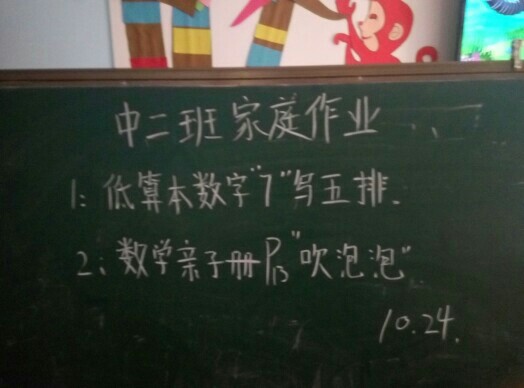 中二班家庭作业
1:低算本数字"7"写五排.
2:数学亲子册P13"吹泡泡"
10.24.